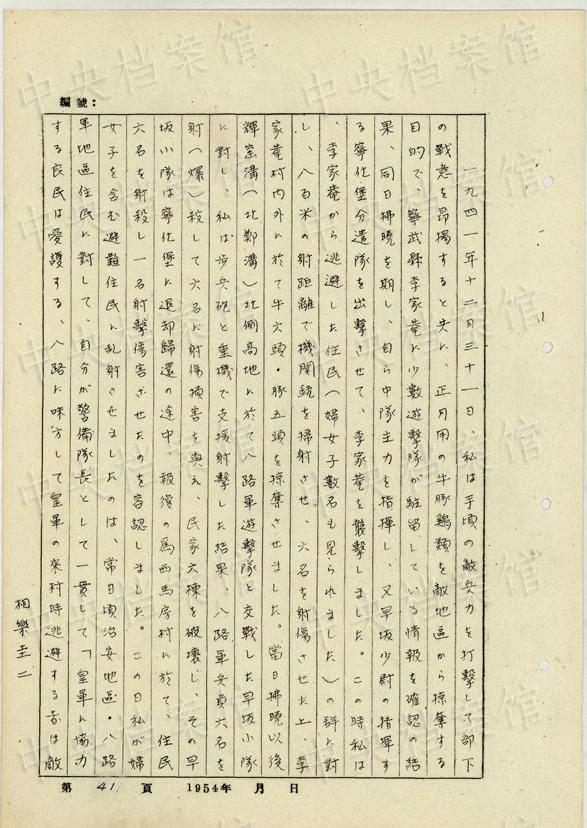 編號：
一九四一年十二月三十一日、私は手頃の敵兵力を打撃して部下
の戦意を昂揚すると共に、正月用の牛豚鶏類を敵地區から掠奪する
目的で、寧武縣李家菴に少數遊撃隊が駐留している情報を確認の結
果、同日拂曉を期し、自ら中隊主力を指揮し、又早坂少尉の指揮す
る寧化堡分遣隊を出撃させて、李家菴を襲撃しました。この時私は
、李家菴から逃避した住民（婦女子數名も見られました）の群に對
し、八百米の射距離で機関銃を掃射させ、六名を射傷させた上、李
家菴村内外に於て牛六頭・豚五頭を掠奪させました。當日拂曉以後
輝窰溝（北鄭溝）北側高地に於て八路軍遊撃隊と交戦した早坂小隊
に對し、私は歩兵砲と重機で支援射撃した結果、八路軍兵員六名を
射（爆）殺して六名に射傷損害を與え、民家六棟を破壊し、その早
坂小隊は寧化堡に退却歸還の途中、報復の為西馬房村に於て、住民
六名を射殺し一名射撃傷害させたのを容認しました。この日私が婦
女子を含む避難住民に乱射させましたのは、常日頃治安地區・八路
軍地區住民に對して、自分が警備隊長として一貫して「皇軍に協力
する良民は愛護する、八路に味方して皇軍の來村時逃避する者は敵
相樂圭二
第 41 頁 1954年 月 日
中央档案馆